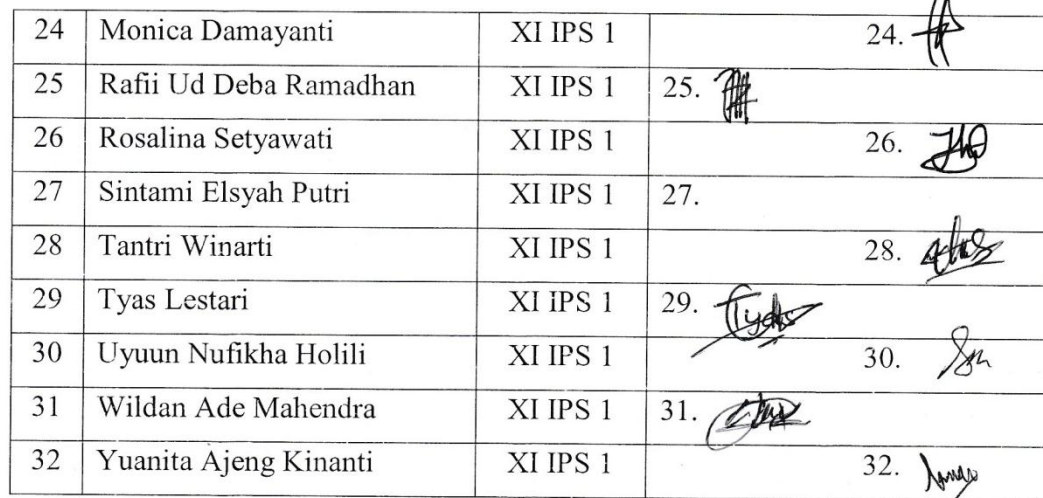 24 Monica Damayanti XI IPS 1 24.
25 Rafii Ud Deba Ramadhan XI IPS 1 25.
26 Rosalina Setyawati XI IPS 1 26.
27 Sintami Elsyah Putri XI IPS 1 27.
28 Tantri Winarti XI IPS 1 28.
29 Tyas Lestari XI IPS 1 29. Tyas
30 Uyuun Nufikha Holili XI IPS 1 30.
31 Wildan Ade Mahendra XI IPS 1 31.
32 Yuanita Ajeng Kinanti XI IPS 1 32.